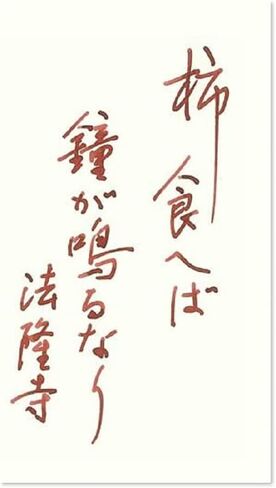 柿食へば
鐘が鳴るなり
法隆寺